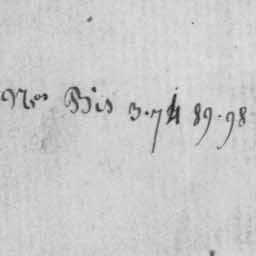 Nro Bis 3. 74 89. 98